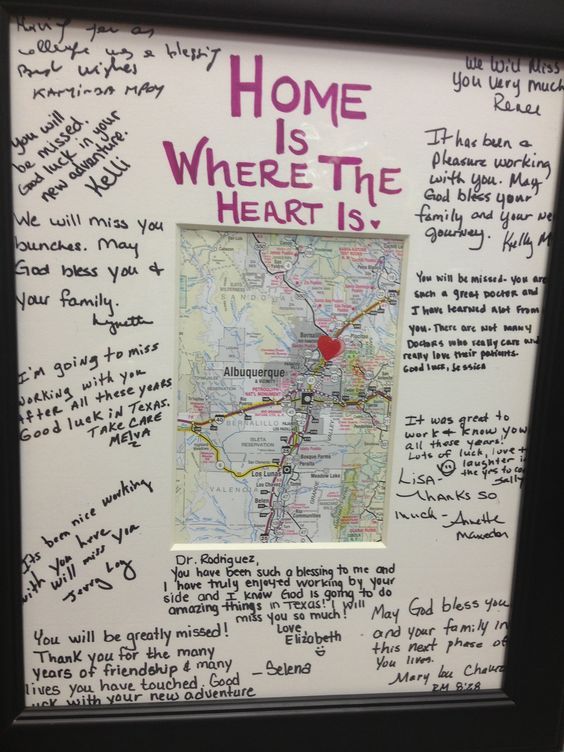 Having
college was a blessing
Best Wishes
HOME
IS
WHERE THE
HEART IS
We Will Miss
You Very much
Renee
you will
be missed.
Good luck in your
new adventure.
Kelli
It has been a
Pleasure working
with you. May
God bless your
family and your
journey. Kelly M
We will miss you
bunches. May
God bless you &
your family.
Lynette
You will be missed- you are
such a great Doctor and
I have learned alot from
you. There are not many
Doctors who really care and
really love their patients.
Good luck, Jessica
I'm going to miss
working with you
After all these years
Good luck in Texas.
TAKE CARE
MELVA
It was great to
work & know you
all those years!
Lots of luck, love &
laughter in
the yrs to
Sally
LISA-
Thanks so
much-
Annette
Its been nice working
with you here
will miss you
Jerry
SANDOVAL
Bernalillo
Placitas
Albuquerque
& VICINITY
PETROGLYPH
NAT'L MONUMENT
BERNALILLO
ISLETA
RESERVATION
Bosque Farms
Peralta
Los Lunas
Meadow Lake
Los Chavez
VALENCIA
Belen
Rio
Communities
Dr. Rodriguez,
You have been such a blessing to me and
I have truly enjoyed working by your
side and I know God is going to do
amazing things in Texas! I will
miss you so much!
Love,
Elizabeth
You will be greatly missed!
Thank you for the many
years of friendship & many
lives you have touched. Good
luck with your new adventure
-Selena
May God bless you
and your family in
this next phase of
you lives.
Mary Lou
RM 8'28